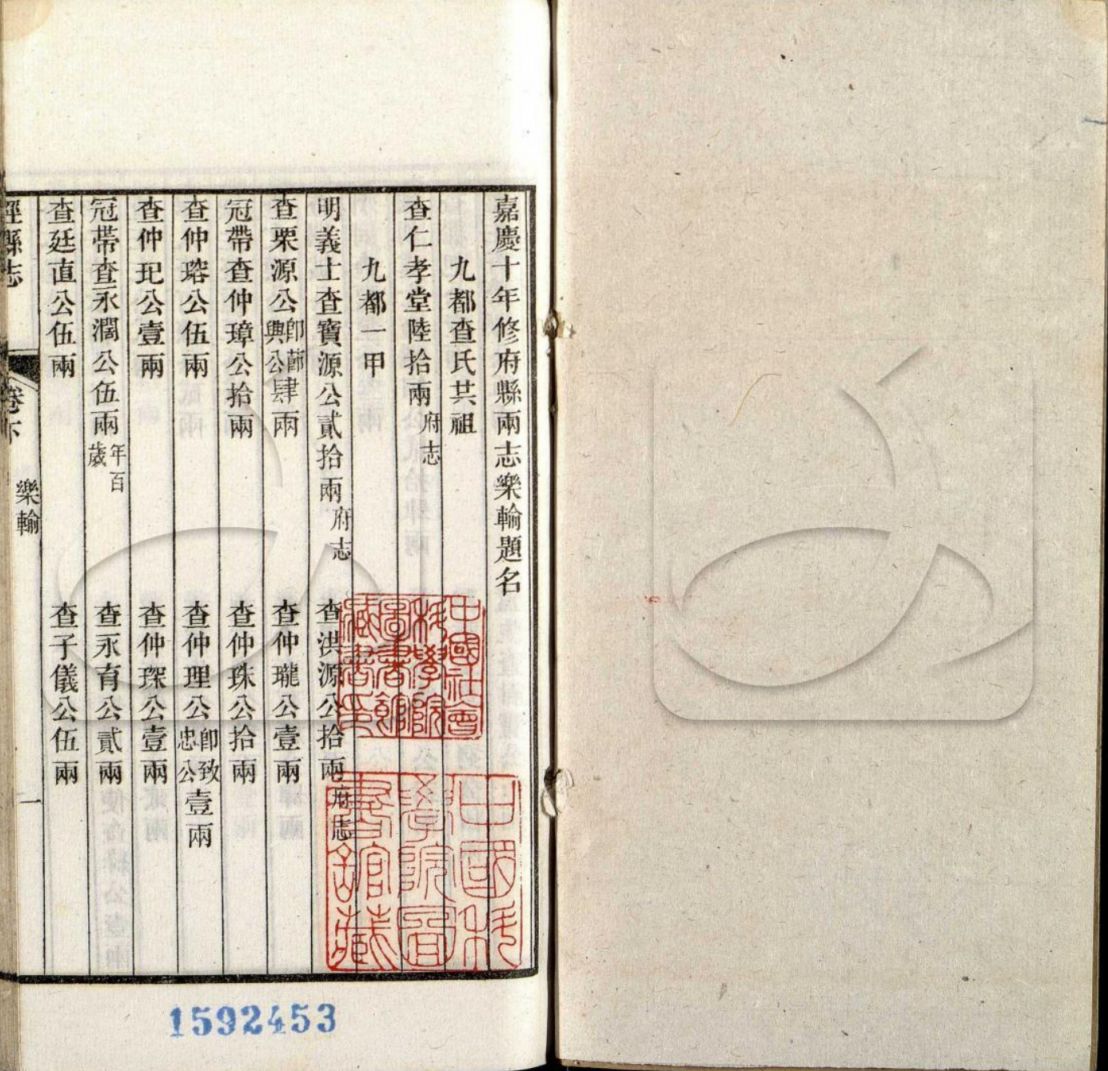 嘉慶十年修府縣兩志樂輸題名
九都查氏共祖
查仁孝堂陸拾兩府志
九都一甲
明義士查寶源公貳拾兩府志　查洪源公拾兩府志
查栗源公卽節興公肆兩　查仲瓏公壹兩
冠帶查仲璋公拾兩　查仲珠公拾兩
查仲瑢公伍兩　查仲理公卽致忠公壹兩
查仲玘公壹兩　查仲琛公壹兩
冠帶查永濶公伍兩年百歲　查永育公貳兩
查廷直公伍兩　查子儀公伍兩
涇縣志　卷下　樂輸　一
中國社會科學院圖書館藏書印
中國科學院圖書館藏
1592453